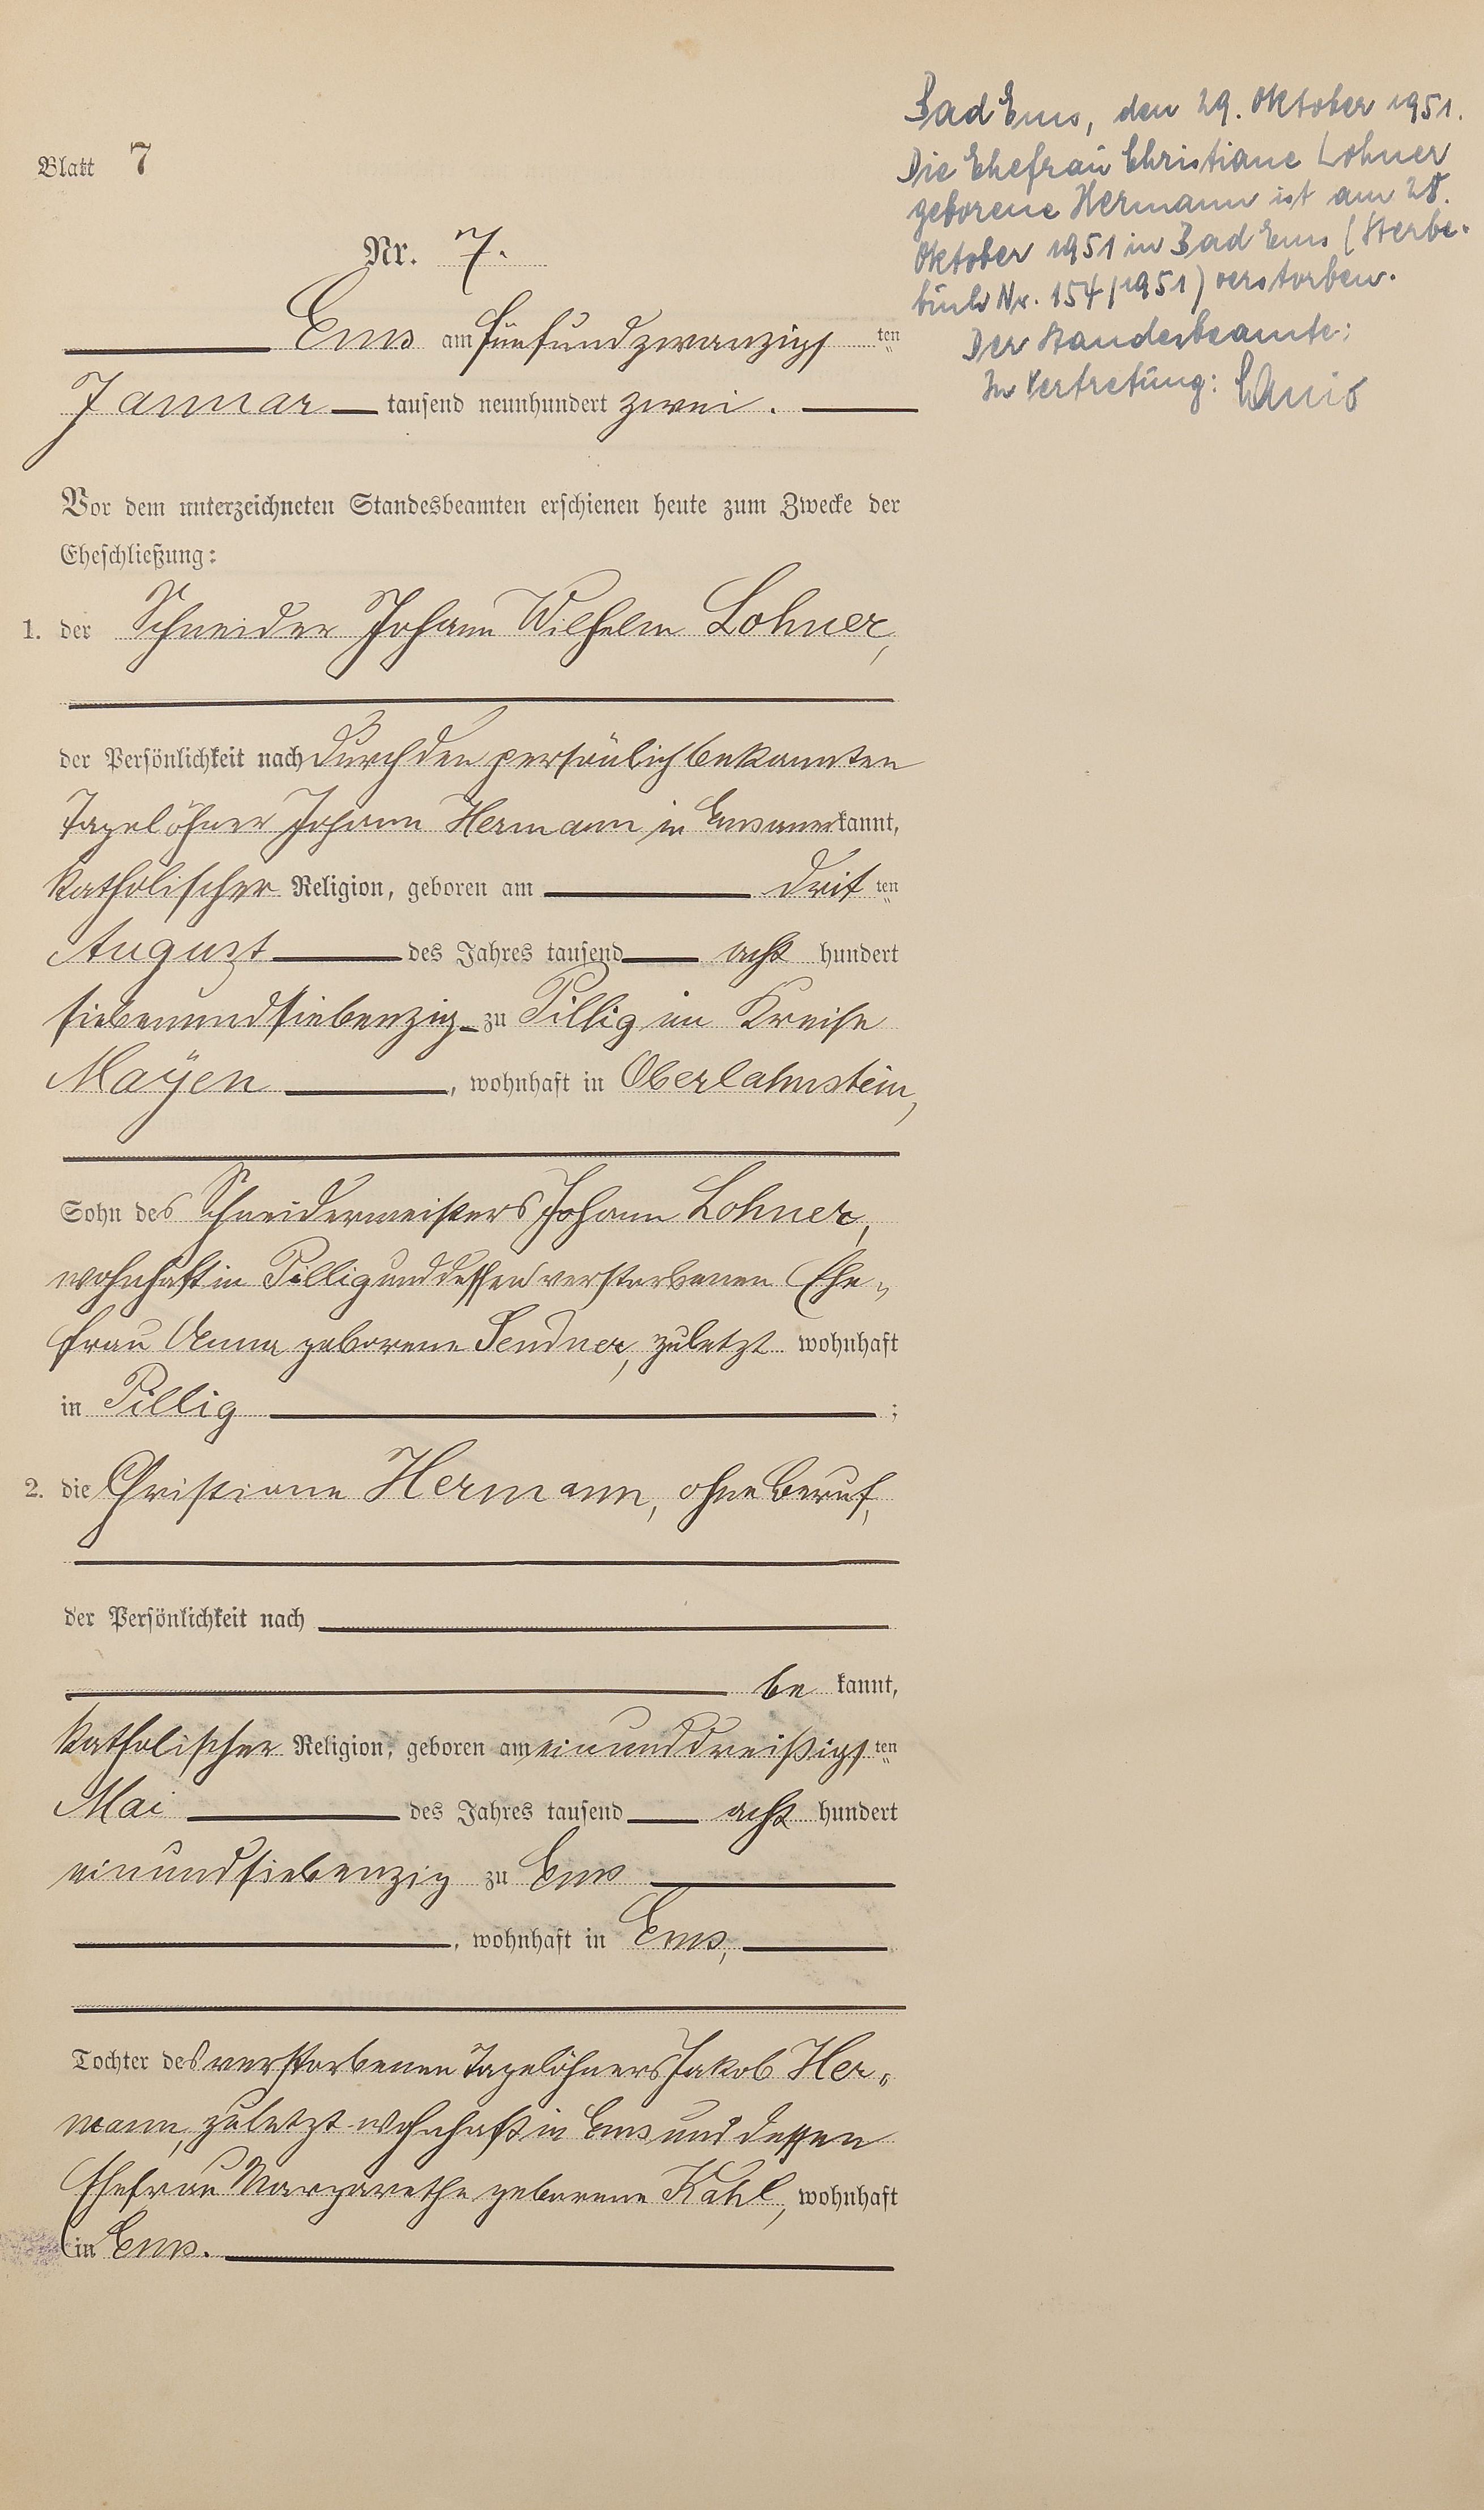 Blatt 7
Nr. 7.
Ems am fünfundzwanzigsten
Januar tausend neunhundert zwei.
Vor dem unterzeichneten Standesbeamten erschienen heute zum Zwecke der
Eheschließung:
1. der Schneider Johann Wilhelm Lohner,
der Persönlichkeit nach durch den persönlich bekannten
Tagelöhner Johann Hermann in Ems anerkannt,
katholischer Religion, geboren am dritten
August des Jahres tausend acht hundert
siebenundsiebenzig zu Pillig im Kreise
Mayen, wohnhaft in Oberlahnstein,
Sohn des Schneidermeisters Johann Lohner,
wohnhaft in Pillig und dessen verstorbenen Ehe-
frau Anna geborene Sendner, zuletzt wohnhaft
in Pillig;
2. die Christiane Hermann, ohne Beruf,
der Persönlichkeit nach
bekannt,
katholischer Religion, geboren am einunddreißigsten
Mai des Jahres tausend acht hundert
einundsiebenzig zu Ems
, wohnhaft in Ems,
Tochter des verstorbenen Tagelöhners Jakob Her-
mann, zuletzt wohnhaft in Ems und dessen
Ehefrau Margarethe geborene Kahl, wohnhaft
in Ems.
Bad Ems, den 29. Oktober 1951.
Die Ehefrau Christiane Lohner
geborene Hermann ist am 28.
Oktober 1951 in Bad Ems (Sterbe-
buch Nr. 154/1951) verstorben.
Der Standesbeamte:
In Vertretung: